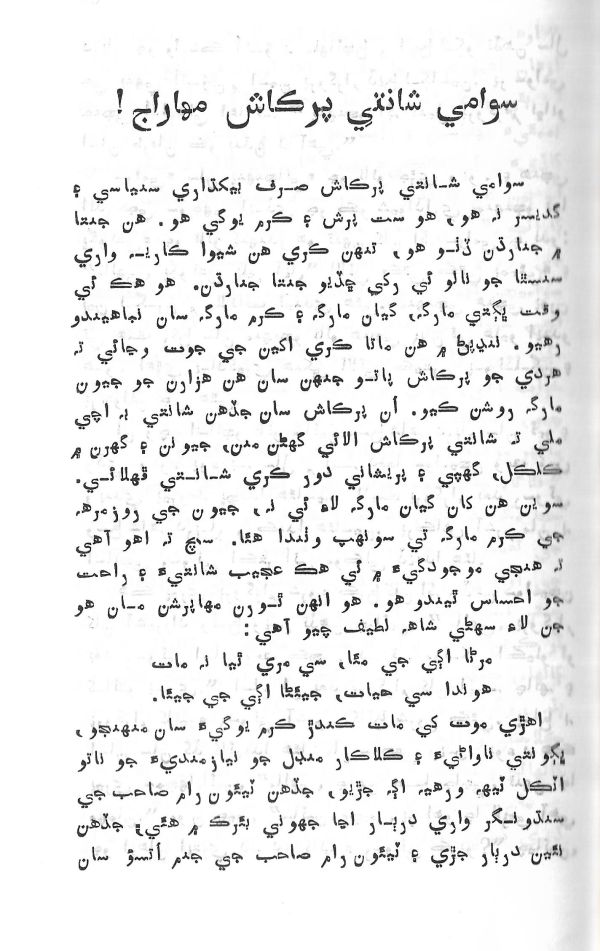 سوامي شانتي پرڪاش مهاراج !
سوامي شانتي پرڪاش صرف ڀيکڌاري سنياسي ۽
گديسر نہ هو، هو ست پرش ۽ ڪرم يوگي هو. هن جنتا
۾ جنارڌن ڏٺو هو، تنهن ڪري هن شيوا ڪاريہ واري
سنسٿا جو نالو ئي رکي ڇڏيو جنتا جنارڌن. هو هڪ ئي
وقت ڀڳتي مارگہ، گيان مارگہ ۽ ڪرم مارگہ سان نڀاهيندو
رهيو. ننڍپڻ ۾ هن ماتا ڪري اکين جي جوت وڃائي تہ
هردي جو پرڪاش پاتو جنهن سان هن هزارن جو جيون
مارگہ روشن ڪيو. اُن پرڪاش سان جڏهن شانتي بہ اچي
ملي تہ شانتي پرڪاش الائي گهڻن منن، جيونن ۽ گهرن ۾
ڪلڪل، گهٻي ۽ پريشاني دور ڪري شانتي ڦهلائي.
سوين هن کان گيان مارگہ لاءِ ئي نہ، جيون جي روزمرهہ
جي ڪرم مارگہ تي سونهپ وٺندا هئا. سچ تہ اهو آهي
تہ هنجي موجودگيءَ ۾ ئي هڪ عجيب شانتيءَ ۽ راحت
جو احساس ٿيندو هو. هو انهن ٿورن مهاپرشن مان هو
جن لاءِ سهڻي شاهہ لطيف چيو آهي :
مرڻا اڳي جي مئا، سي مري ٿيا نہ مات
هوندا سي حيات، جيئڻا اڳي جي جيئا.
اهڙي موت کي مات ڪندڙ ڪرم يوگيءَ سان منهنجو،
ڀڳونتي ناواڻيءَ ۽ ڪلاڪار منڊل جو نيازمنديءَ جو ناتو
اٽڪل ٽيهہ ورهيہ اڳہ جڙيو، جڏهن ٽيئون رام صاحب جي
سنڌونگر واري درٻار اڃا جهوني بئرڪ ۾ هئي، جڏهن
نئين درٻار جڙي ۽ ٽيئون رام صاحب جي جنم اُتسؤ سان